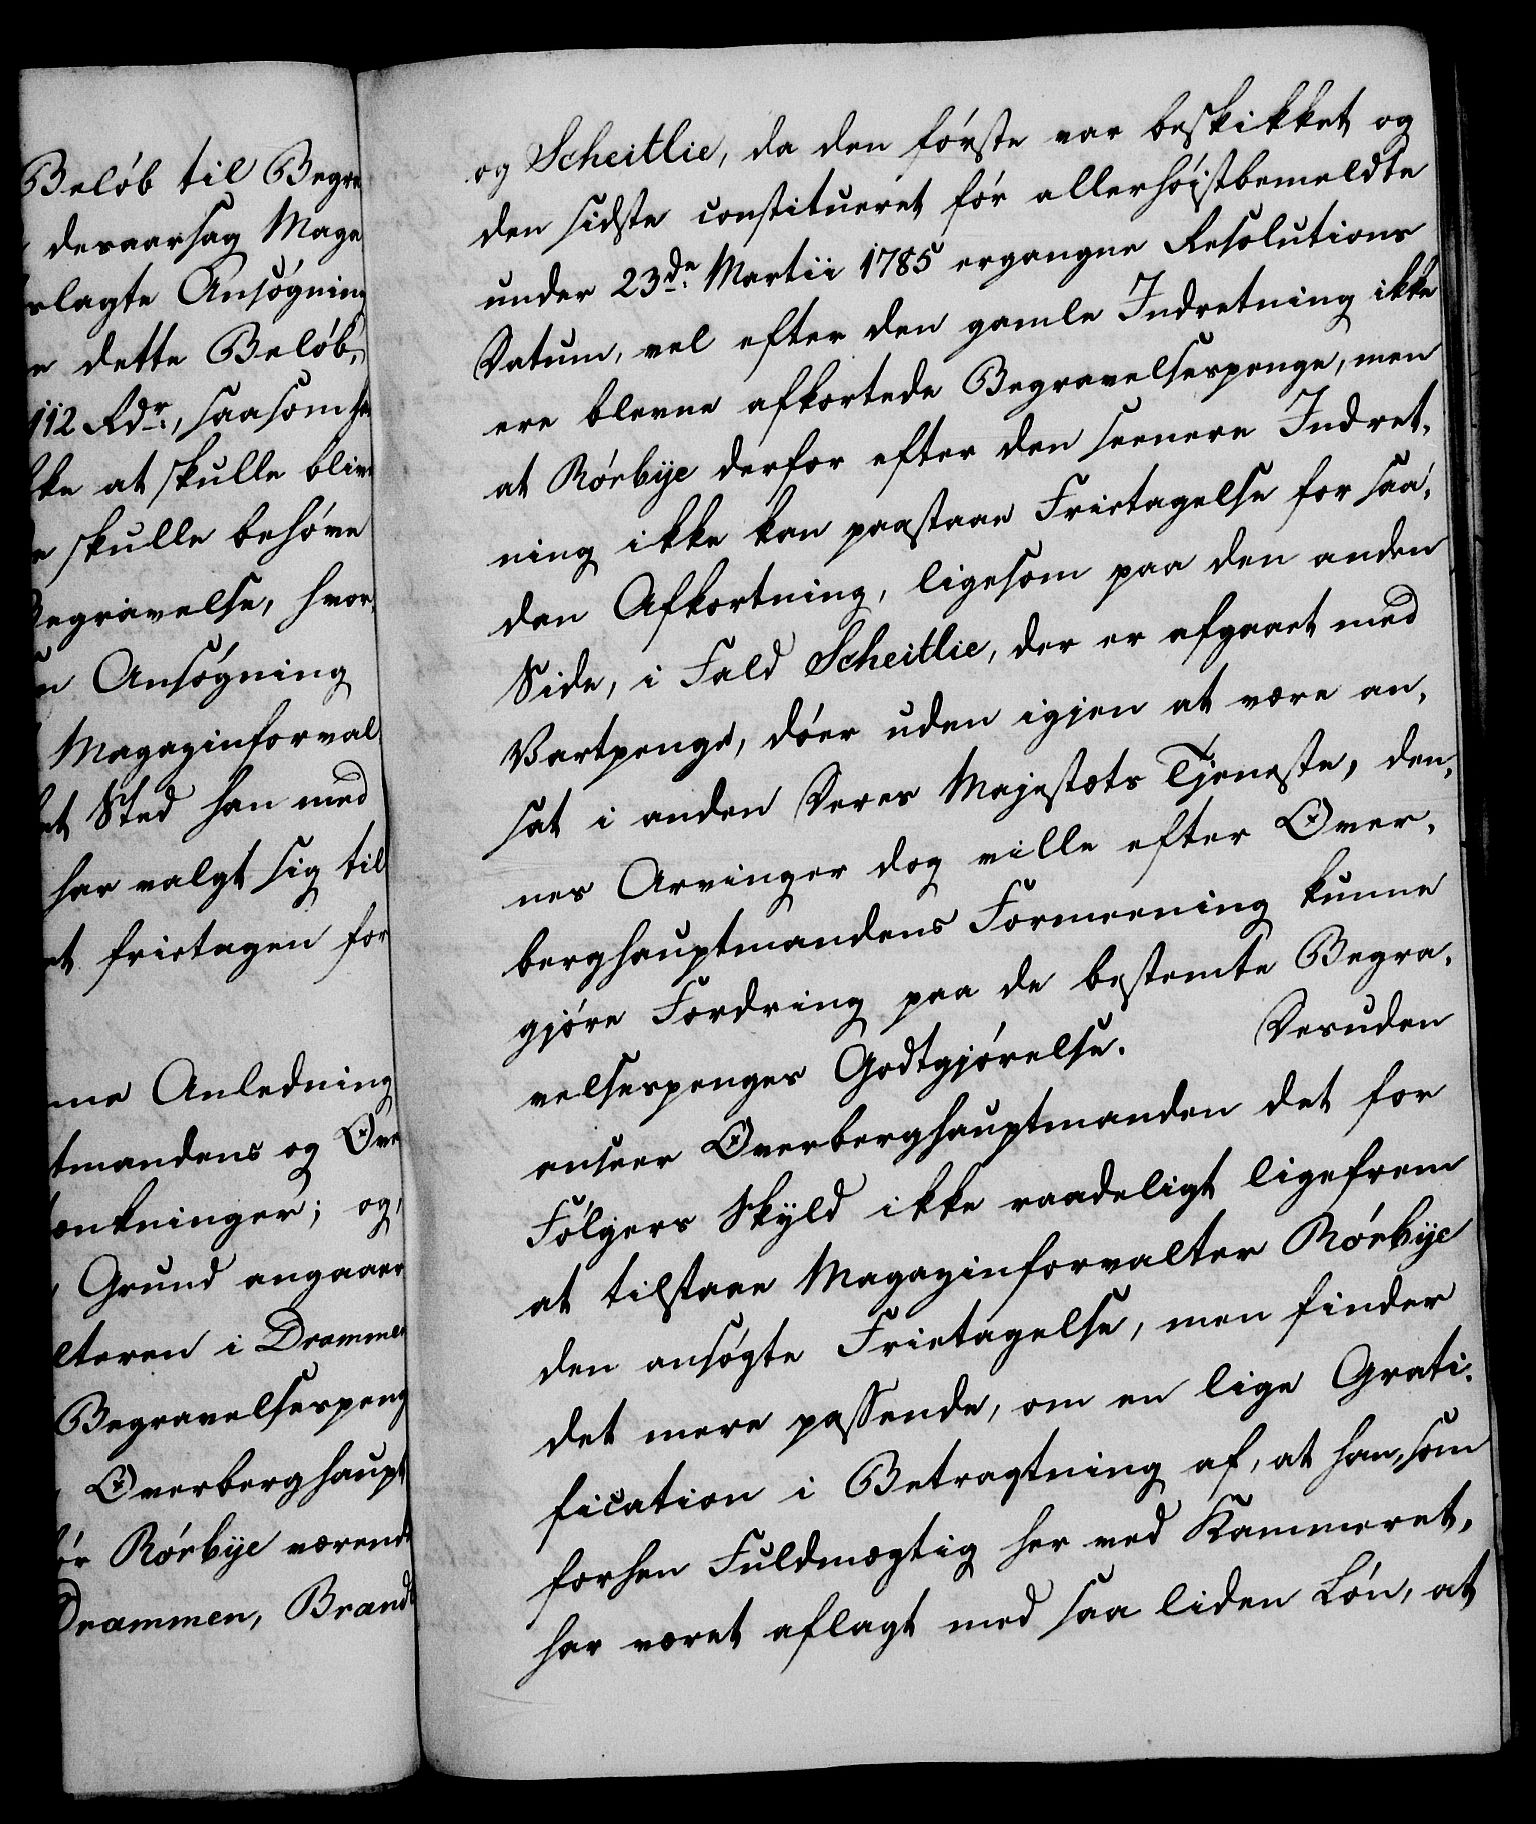 Beløb til Begra
desaarsag Maga
rlagte Ansøgning
e dette Beløb,
112 Rdr., saasom ha
ke at skulle bliv
skulle behøve
Begravelse, hvor,
n Ansøgning
Magazinforval
et Sted han med
har valgt sig til
et frietagen for
me Anledning
tmandens og Ove
ænkninger; og,
Grund angaaer
lteren i Drammen
Begravelsespeng
Overberghaupt
ør Rørbije værend
Drammen, Brandt
og Scheitlie, da den første var beskikket og
den sidste constitueret før allerhøistbemeldte
under 23de. Martii 1785 ergangne Resolutions
Datum, vel efter den gamle Indretning ikke
ere blevne afkortede Begravelsespenge, men
at Rørbije derfor efter den seenere Indret,
ning ikke kan paastaae Frietagelse for saa,
dan Afkortning, ligesom paa den anden
Side, i Fald Scheitlie, der er afgaaet med
Vartpenge, døer uden igjen at være an,
sat i anden Deres Majestæts Tjeneste, den,
nes Arvinger dog ville efter Over,
berghauptmandens Formeening kunne
gjøre Fordring paa de bestemte Begra,
velsespenges Godtgjørelse. Desuden
anseer Overberghauptmanden det for
Følgers Skyld ikke raadeligt ligefrem
at tilstaae Magazinforvalter Rørbije
den ansøgte Frietagelse, men finder
det mere passende, om en lige Grati,
fication i Betragtning af, at han, som
forhen Fuldmægtig her ved Kammeret,
har været aflagt med saa liden Løn, at